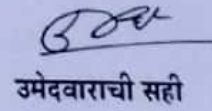 उमेदवाराची सही